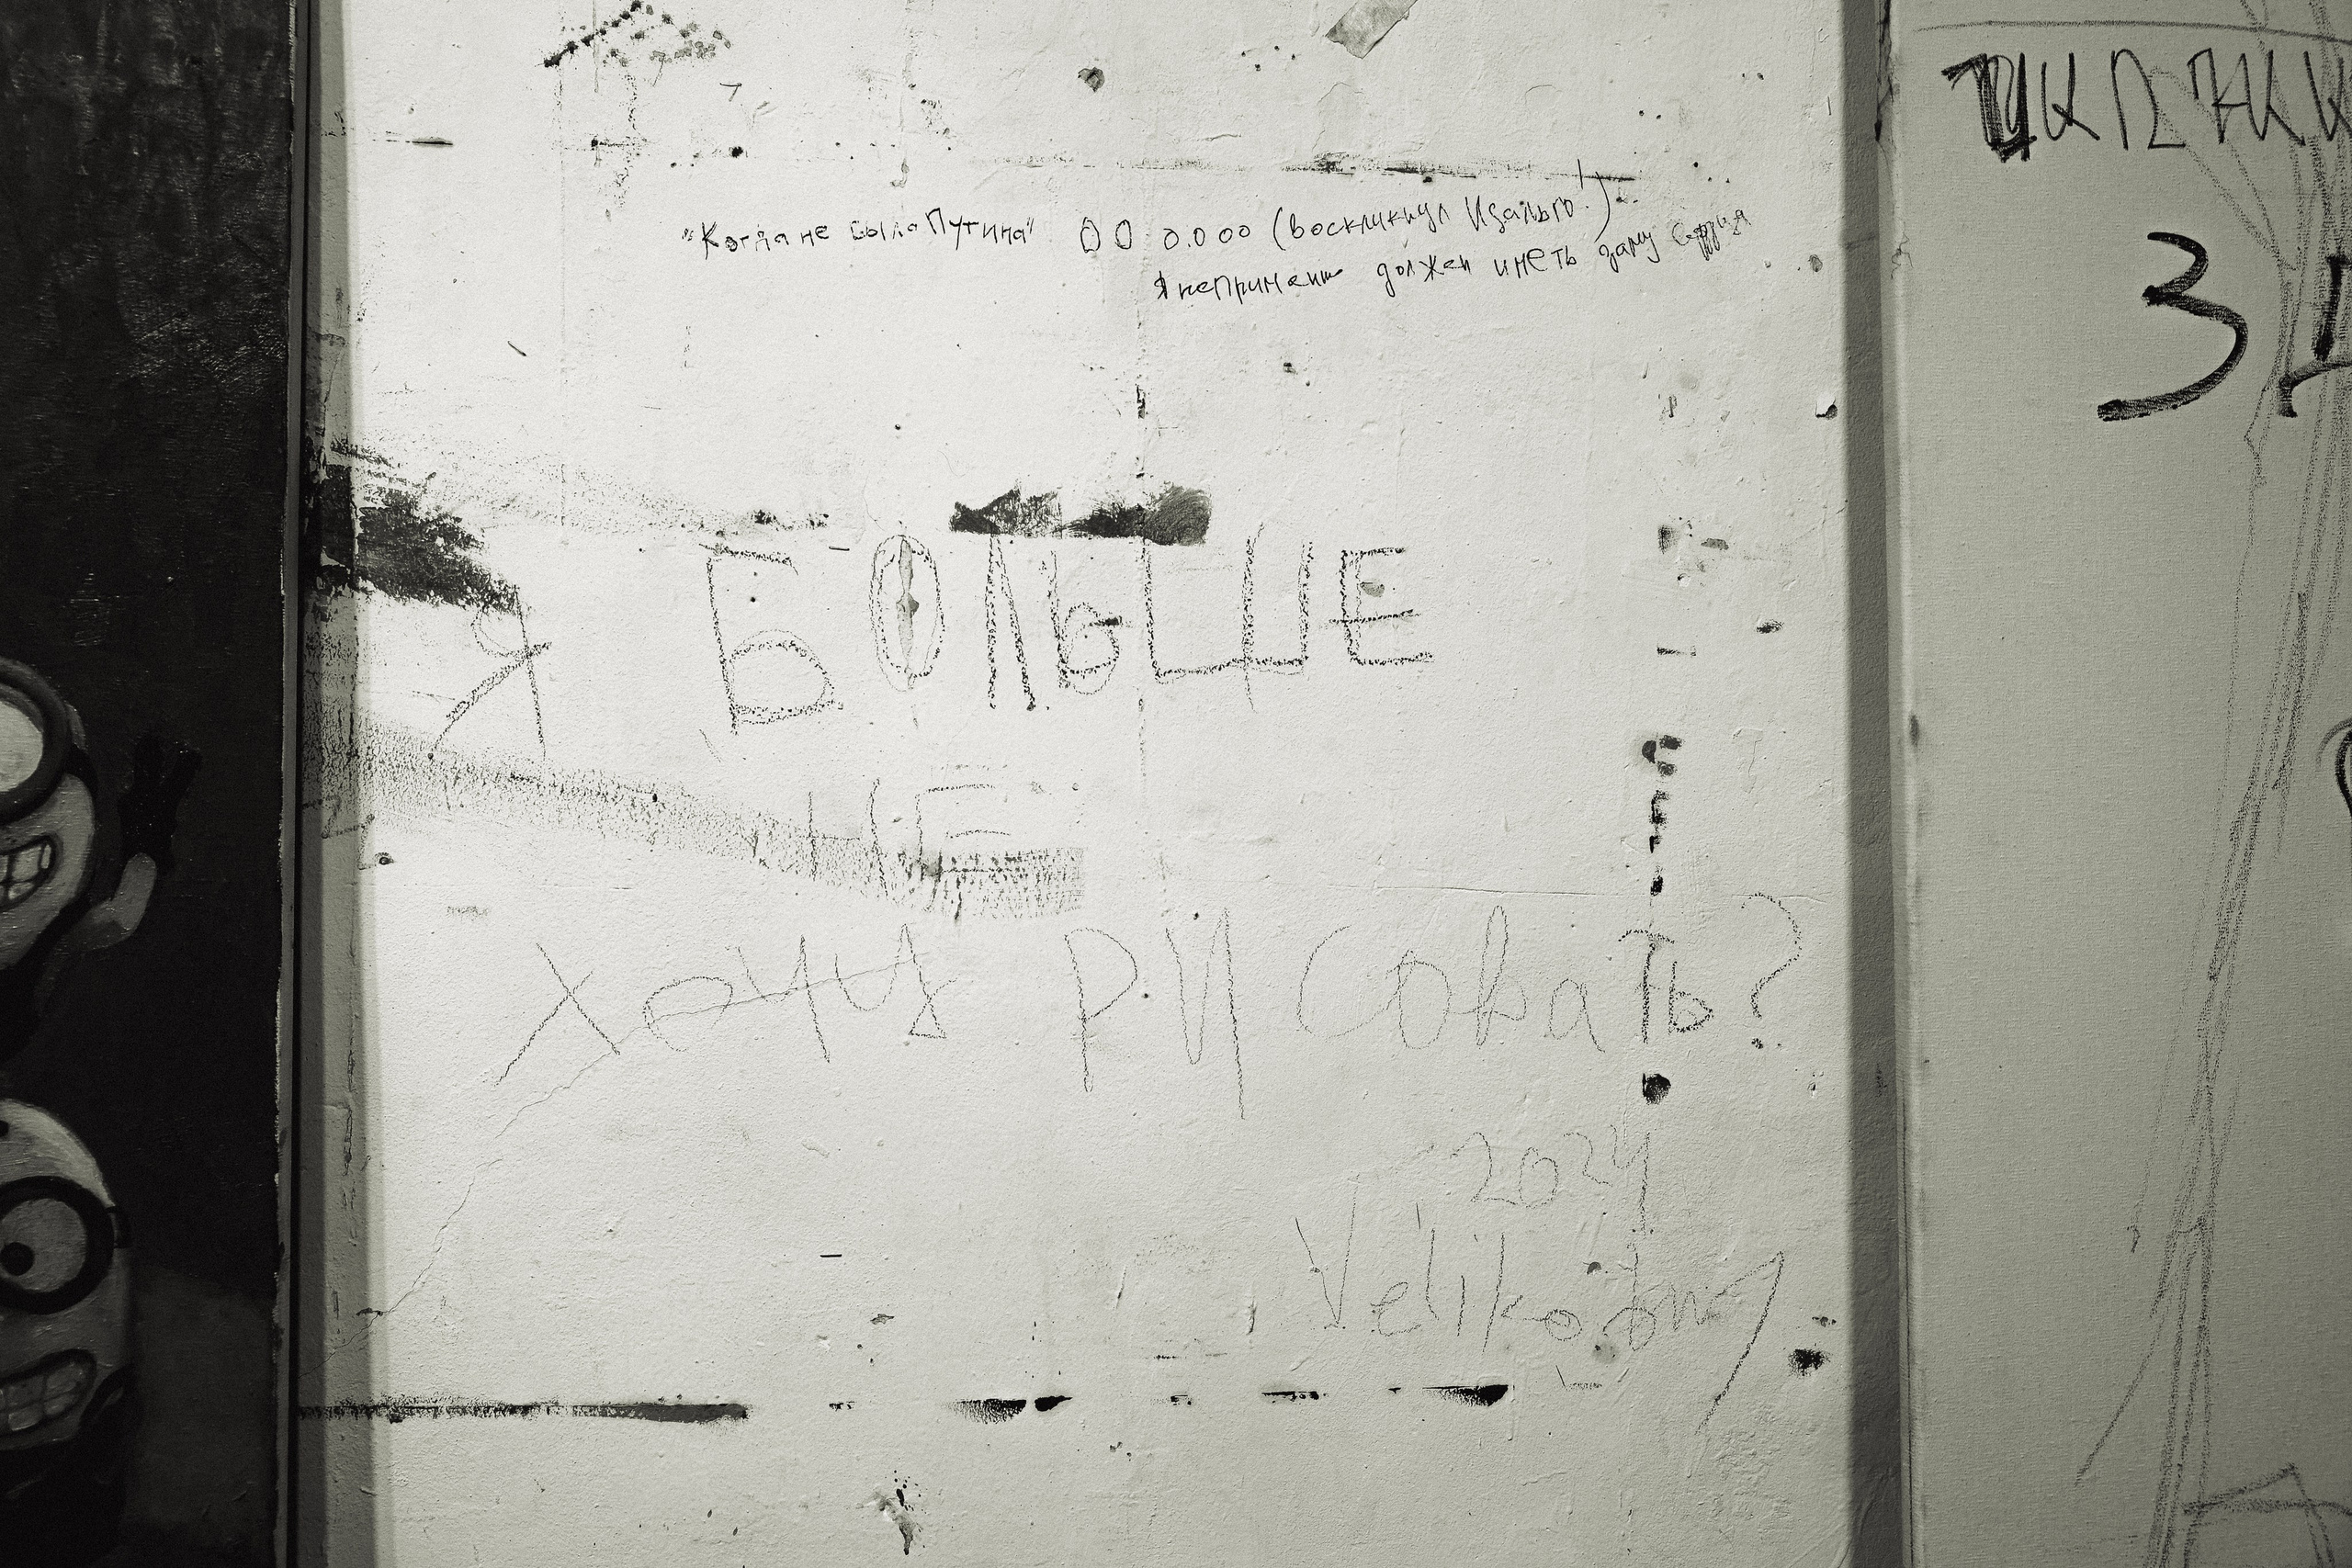 "Когда не было Путина" ОО о.ооо (воскликнул Идальго!)
Я непременно должен иметь даму сердца
Я БОЛЬШЕ
НЕ
хочу рисовать?
2024
Velikodny
З